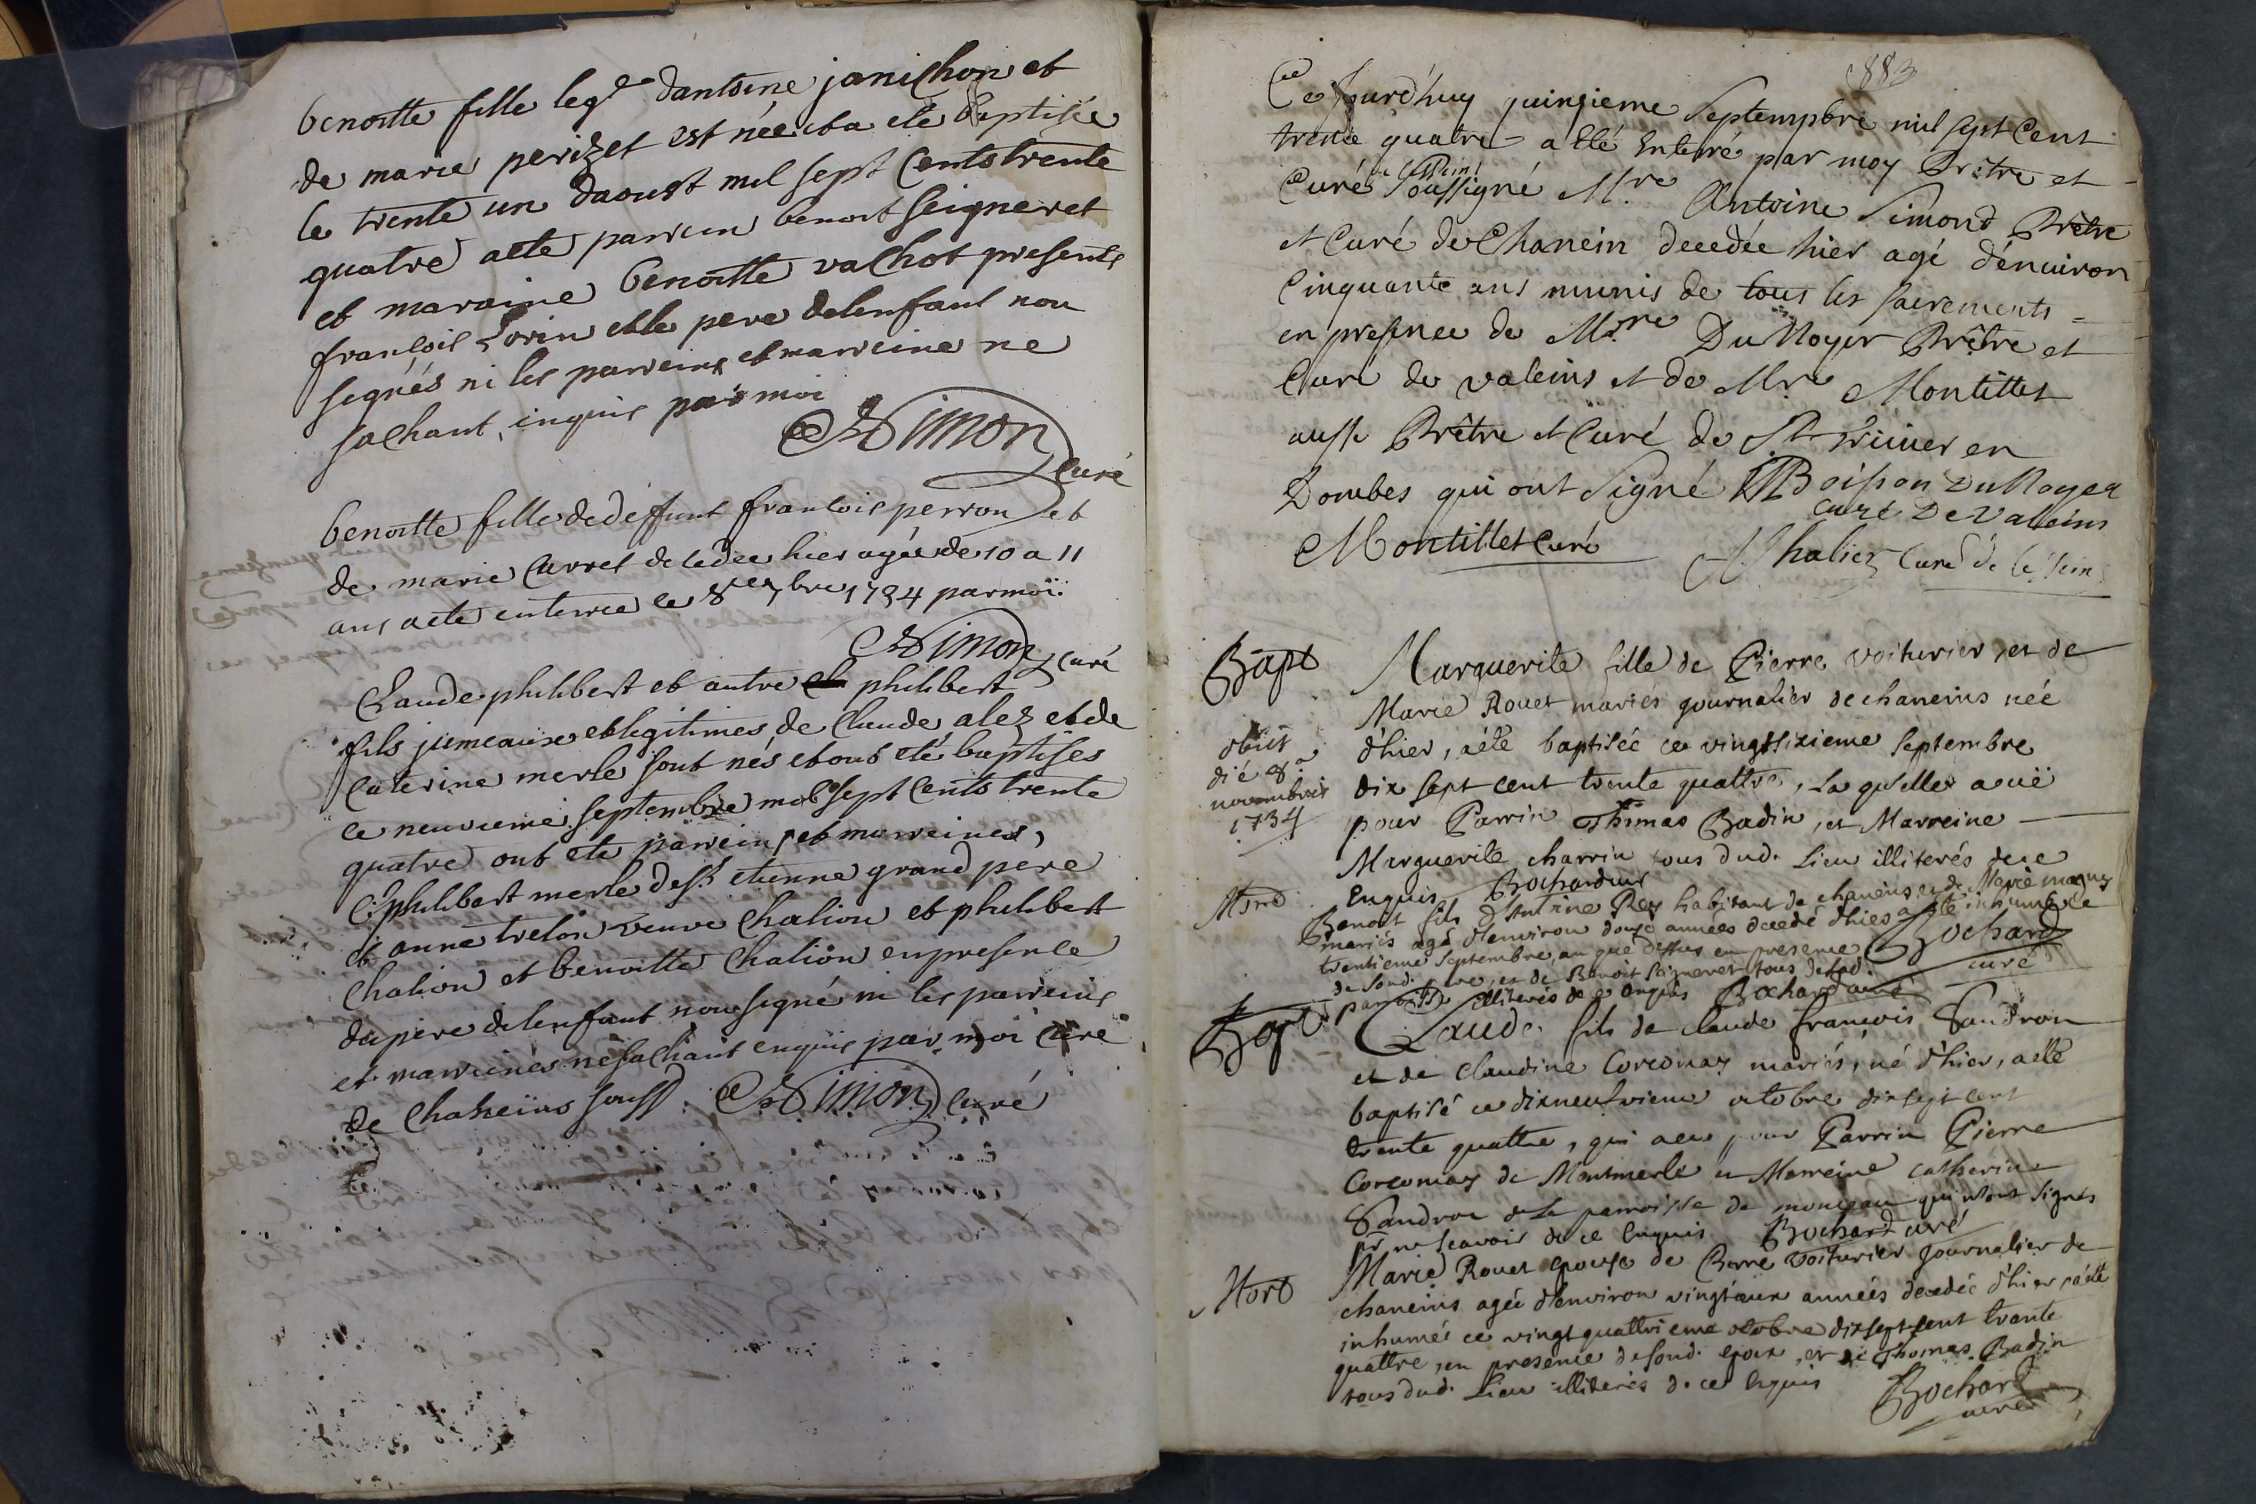 benoitte fille leg.e dantoine janichon et
de marie perizet est née et a ete baptisée
le trente un daoust mil sept cents trente
quatre a ete parrein benoit seigneret
et maraine benoitte vachot presents
francois et le pere de lenfant non
segnés ni les parreins et marreine ne
sachant, inquis par moi
Simon
curé
benoitte fille de deffunt francois perron et
de marie carret decedee hier agée de 10 a 11
ans a ete enterrée le 8 7bre 1734 par moi
Simon curé
Claude philibert et autre philibert
fils jumeaux et legitimes de Claude alez et de
caterine merle sont nés et ont eté baptises
ce neuvieme septembre mil sept cents trente
quatre ont ete parreins et marreines,
philibert merle etienne grand pere
et anne trelon veuve chalion et philibert
chalion et benoitte chalion en presence
du pere de lenfant non segné ni les parreins
et marreines ne sachant enquis par moi curé
de chaneins souss. Simon curé
883
Ce Jourdhuy quinzieme Septempbre mil sept Cent
trente quatre a eté Enterré par moy Prêtre et
Curé Soussigné Mre Antoine Simond Prêtre
et Curé de Chanein decedée hier agé dénuiron
Cinquante ans munis de tous les sacrements
en presence de Mre Du Noyer Prêtre et
Curé de valeins et de Mre Montillet
aussi Prêtre et Curé de St Trivier en
Dombes qui ont Signé Boisson Du Noyer
Curé De Valeins
Montillet Curé
Curé de
Bapt Marguerite fille de Pierre voiturier et de
Marie Rouet mariés journalier de chaneins née
obiit d'hier, a été baptisée ce vingtsixieme septembre
die 8a
novembris dix sept cent trente quattre, La quelle a eüe
1734 pour Parrin Thomas Badin, et Marreine
Marguerite charrin tous dud. Lieu illiterés de ce
Enquis Bochard curé
Mort Benoit fils d'Antoine Rey habitant de chaneins et de Marie
mariés agé d'environ douze années decedé d'hier a été inhumé ce
trentieme Septembre, an que dessus en presence
de sond. pere, et de Benoit Seigneret tous de lad.
parroisse illiterés de ce enquis Bochard curé
Bochard
curé
Bapt Claude fils de claude françois Sandron
et de claudine Corcomay mariés, né d'hier, a été
baptisé ce dixneufvieme octobre dix sept cent
trente quattre, qui a eu pour Parrin Pierre
Corcomay de Montmerle et Marreine catherine
Sandron de la parroisse de qui n'ont signés
pr. ne scavoir de ce Enquis Bochard curé
Mort Marie Rouet epouse de Pierre voiturier journalier de
chaneins agée d'environ années decedée d'hier, a été
inhumée ce vingt quattrieme octobre dix sept cent trante
quattre, en presence de sond. epoux, et de Thomas Badin
tous dud. Lieu illiterés de ce Enquis
Bochard
curé